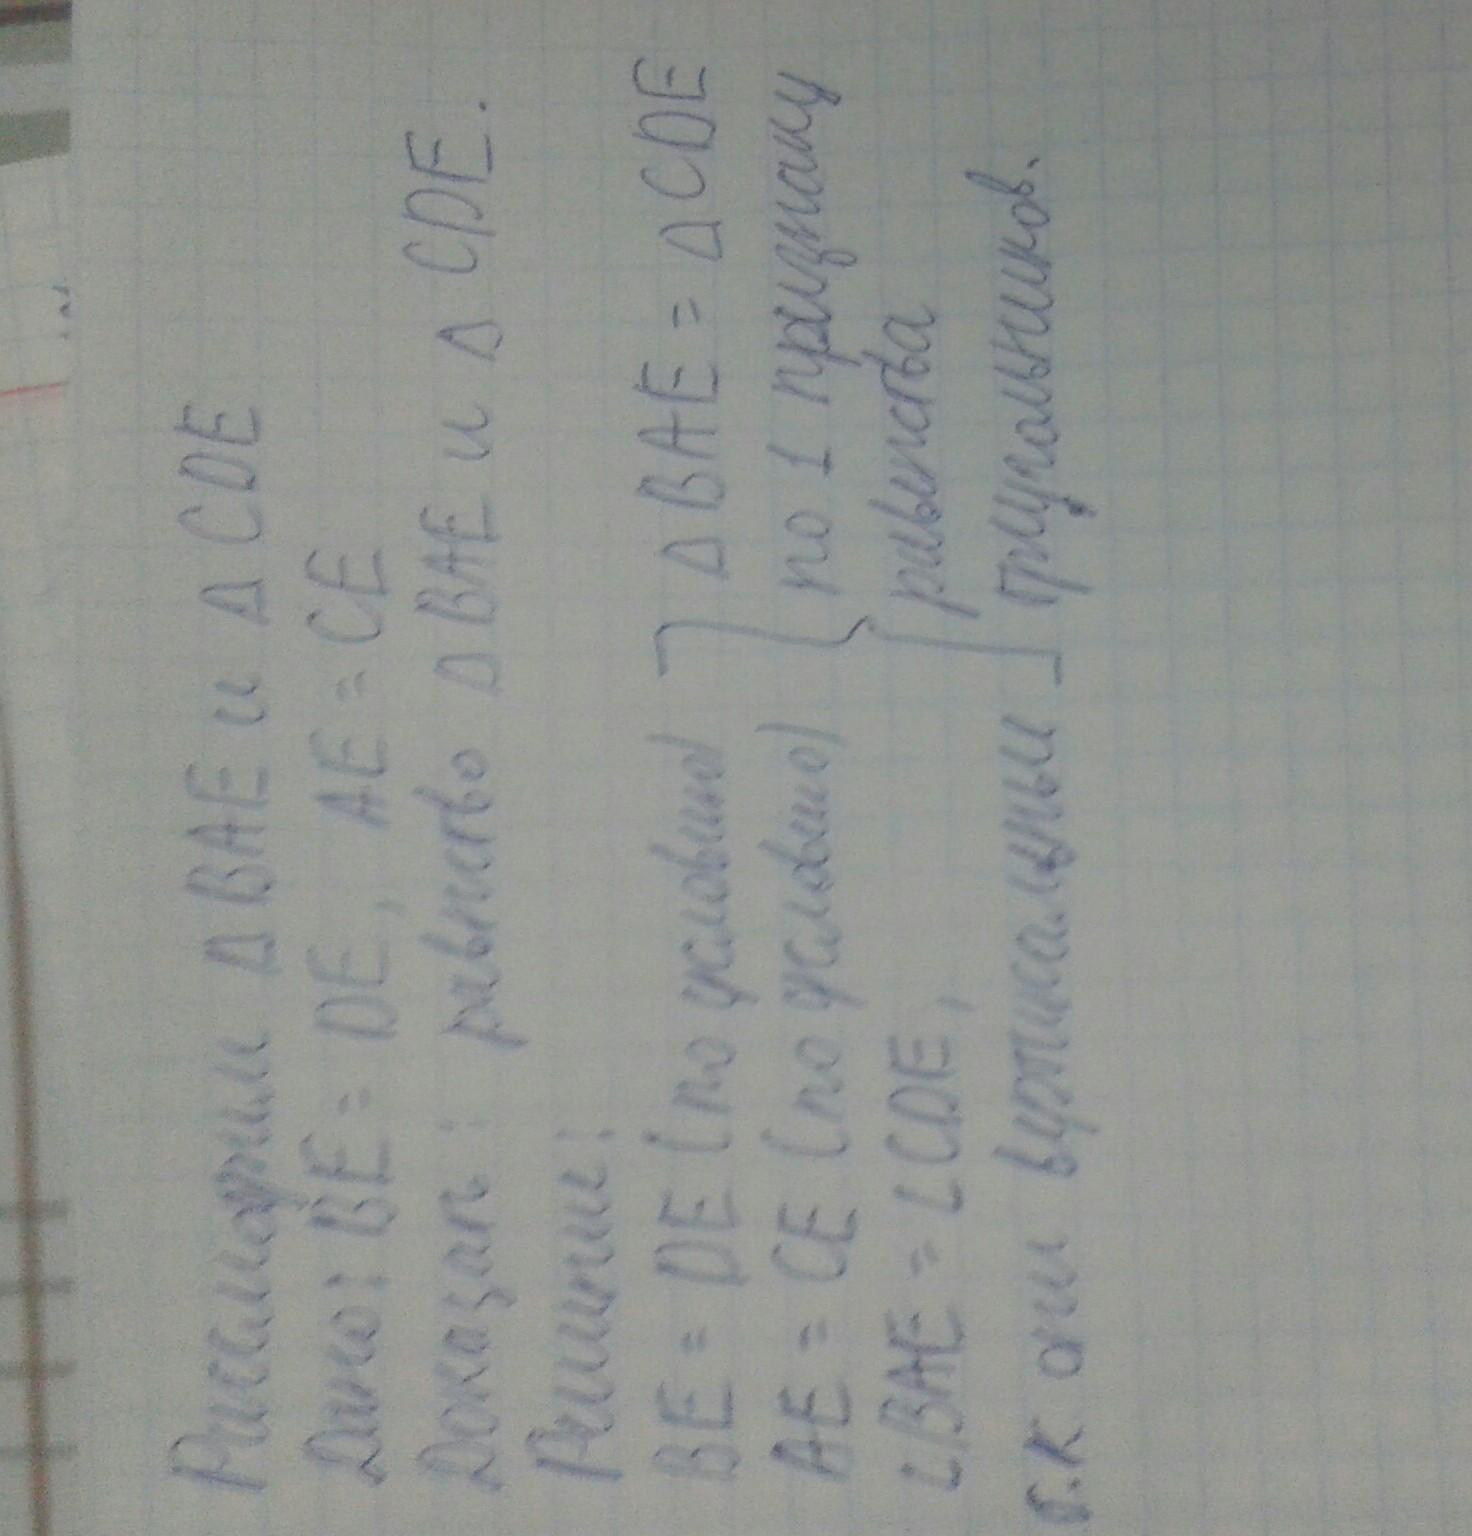 Рассмотрим Δ BAE и Δ CDE
Дано: BE = DE, AE = CE
Доказать: равенство Δ BAE и Δ CDE.
Решение:
BE = DE (по условию)
AE = CE (по условию)
∠BAE = ∠CDE,
т.к они вертикальны
Δ BAE = Δ CDE
по 1 признаку
равенства
треугольников.